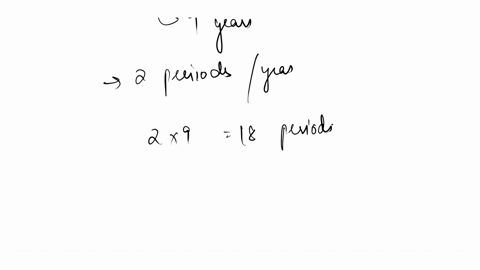 9 years
→ 2 periods / year
2 × 9 = 18 periods